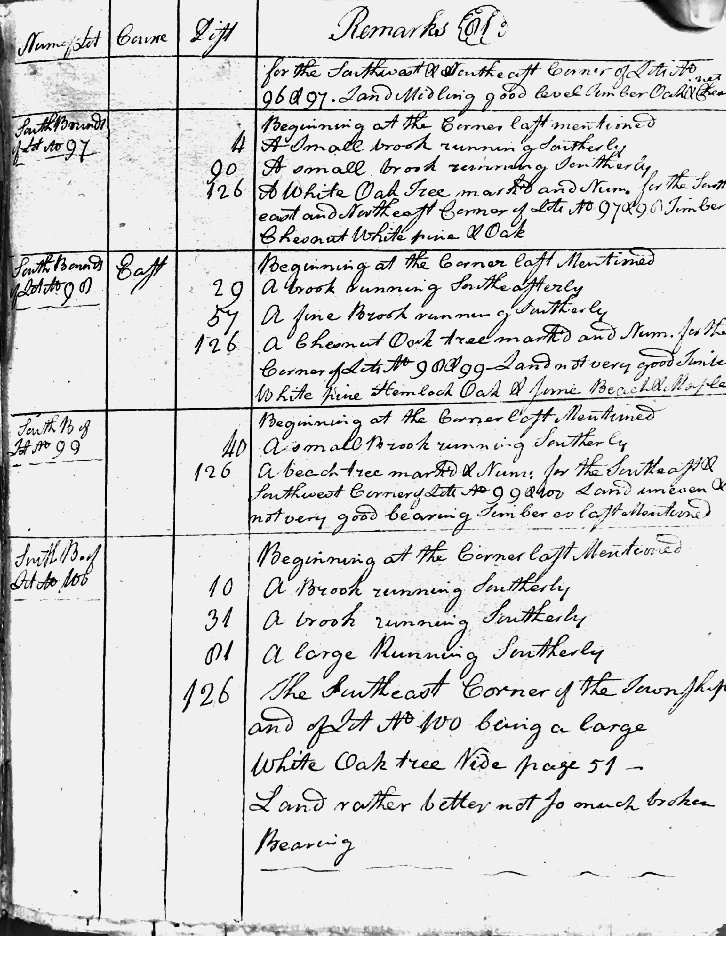 Num of Lot Course Dist Remarks &c
for the Southwest & Southeast Corner of Lots No
96 & 97. Land Midling good level Timber Oak &
South Bounds of Lot No 97
Beginning at the Corner last mentioned
4 A Small brook running Southerly
90 A small brook running Southerly
126 A White Oak Tree markd and Num. for the South
east and Northeast Corner of Lots No 97 & 98 Timber
Chesnut White pine & Oak
South Bounds of Lot No 98 East
Beginning at the Corner last Mentioned
29 A brook running Southeasterly
57 A fine Brook running Southerly
126 A Chesnut Oak tree markd and Num. for the
Corner of Lots No 98 & 99 - Land not very good Timber
White pine Hemlock Oak & some Beach & Maple
South B of Lot No 99
Beginning at the Corner last Mentioned
40 A small Brook running Southerly
126 A beach tree markd & Num. for the Southeast &
Southwest Corner of Lots No 99 & 100 Land uneven &
not very good bearing Timber as last Mentioned
South B of Lot No 100
Beginning at the Corner last Mentioned
10 A Brook running Southerly
31 A brook running Southerly
81 A large Running Southerly
126 The Southeast Corner of the Township
and of Lot No 100 being a large
White Oak tree Vide page 51 -
Land rather better not so much broken
Bearing